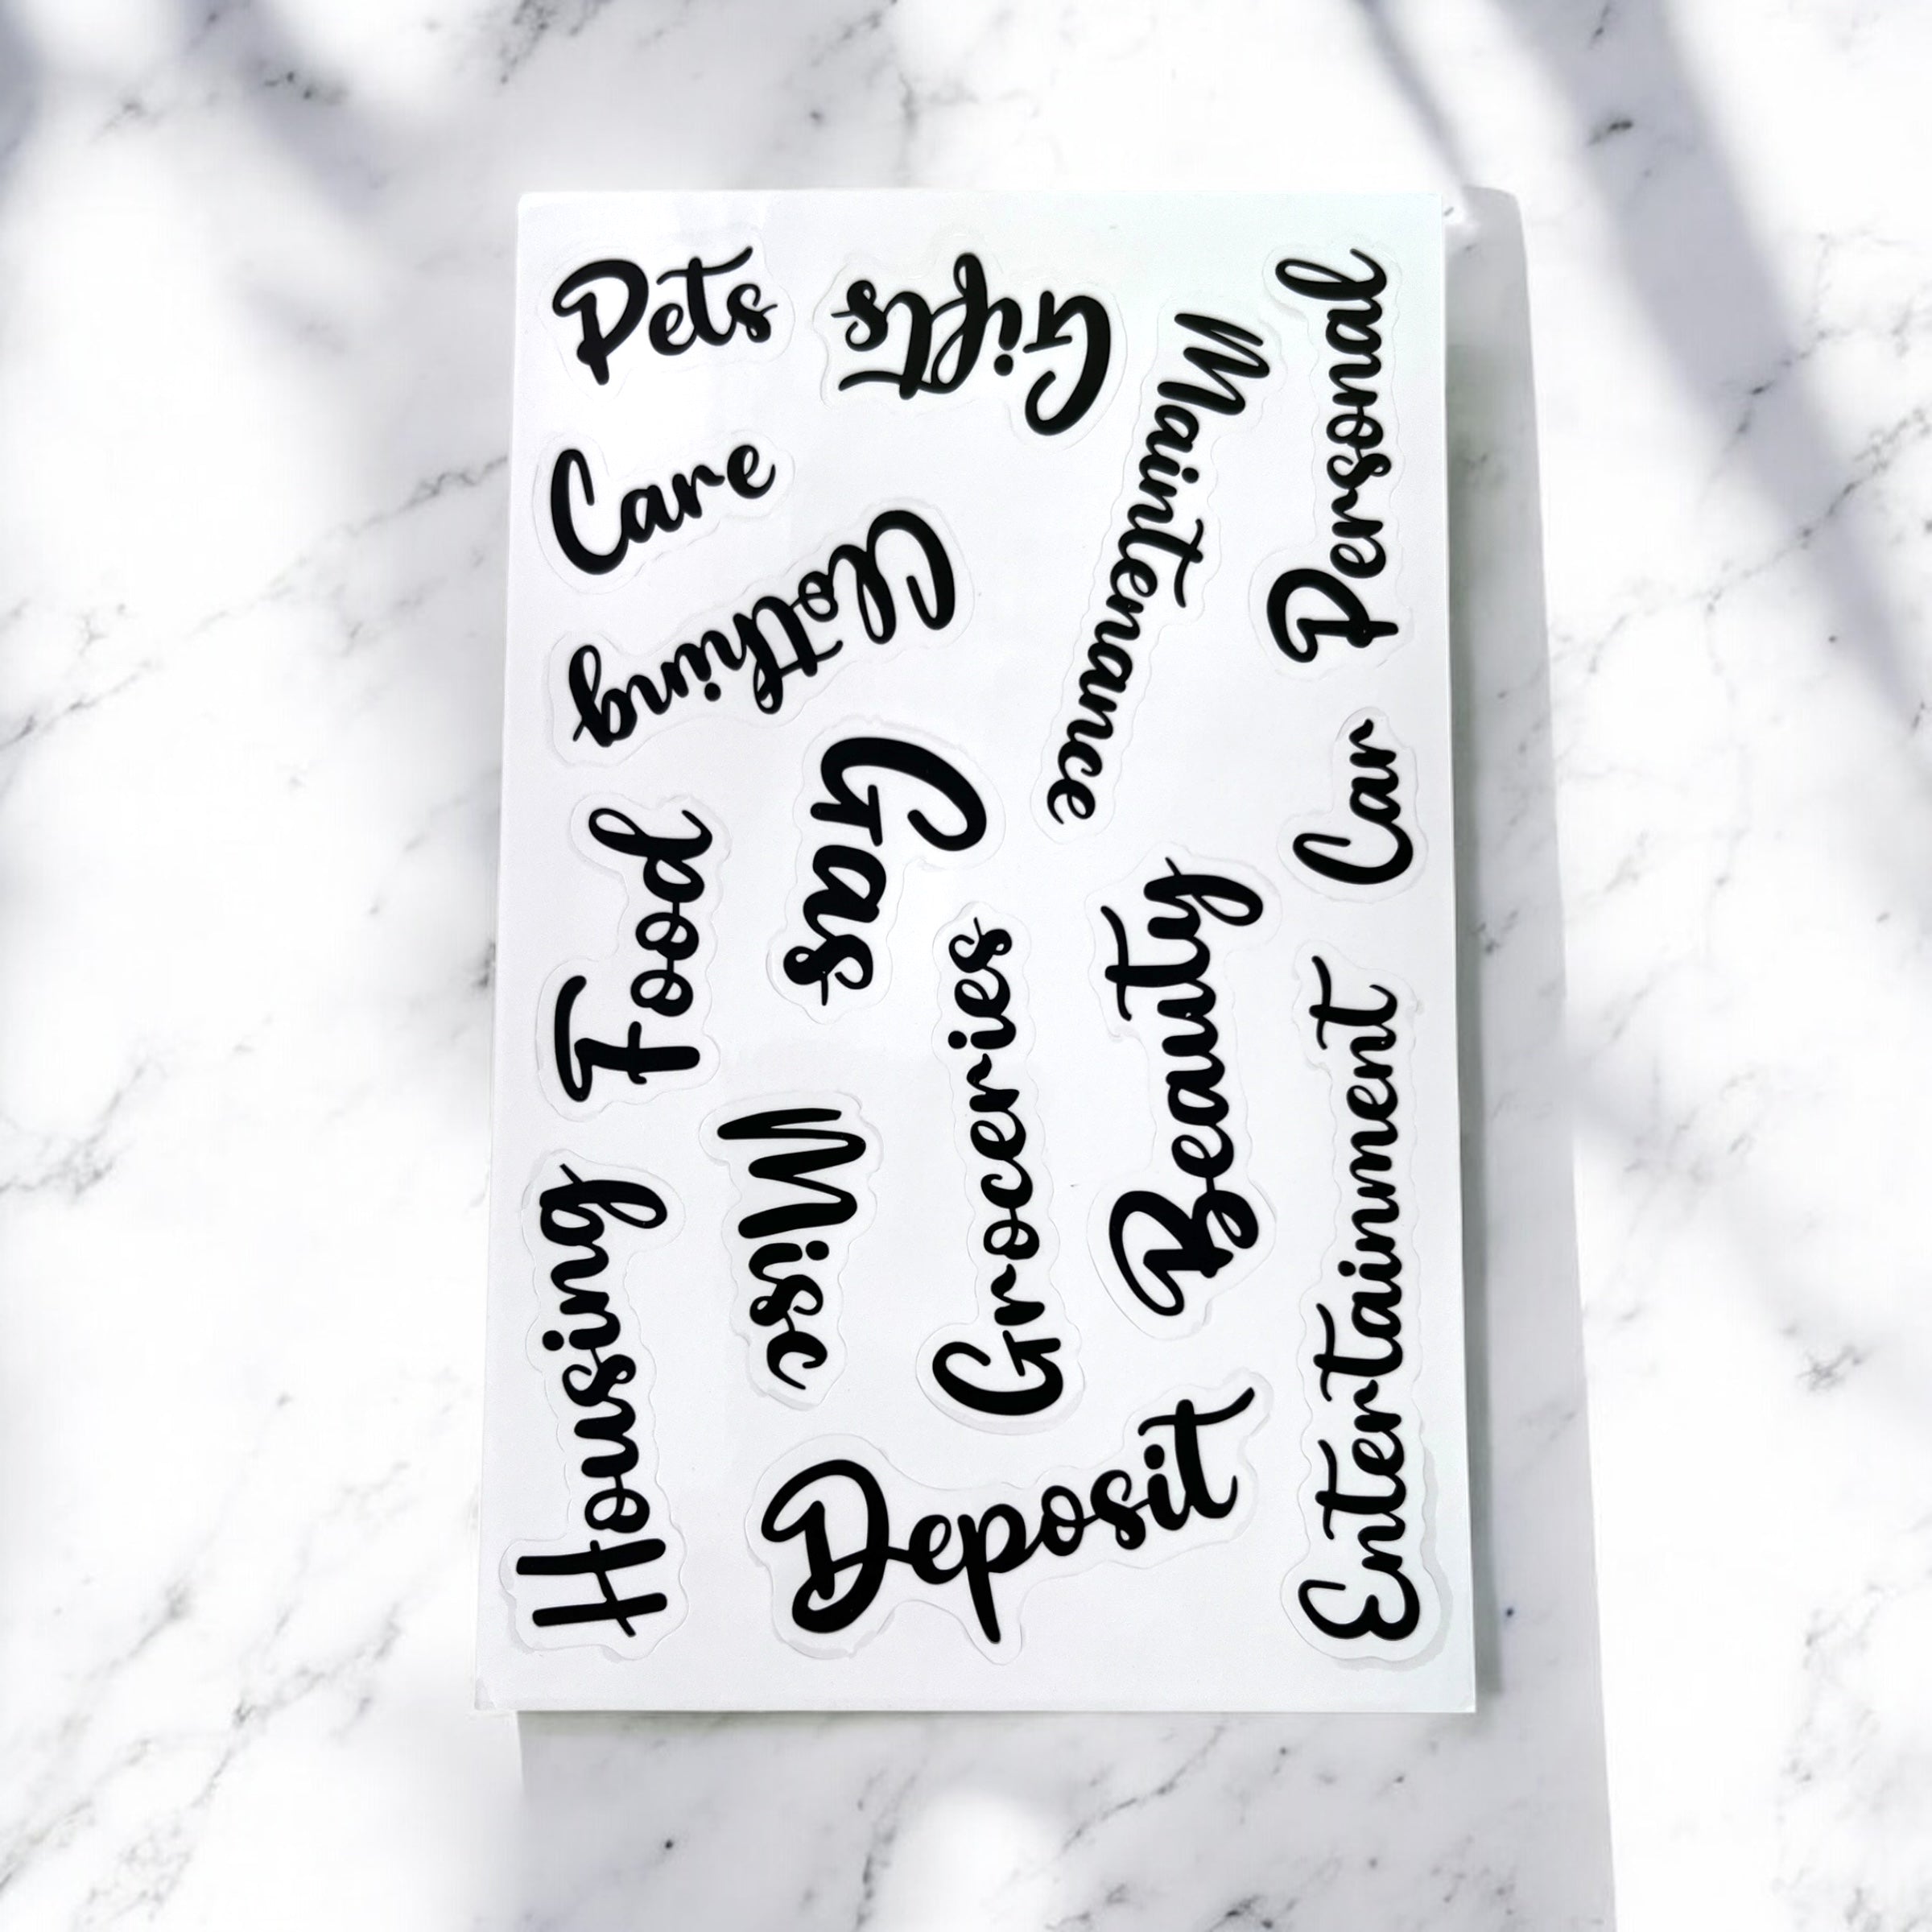 Pets
Gifts
Personal
Maintenance
Care
Clothing
Gas
Car
Food
Groceries
Beauty
Entertainment
Misc
Housing
Deposit